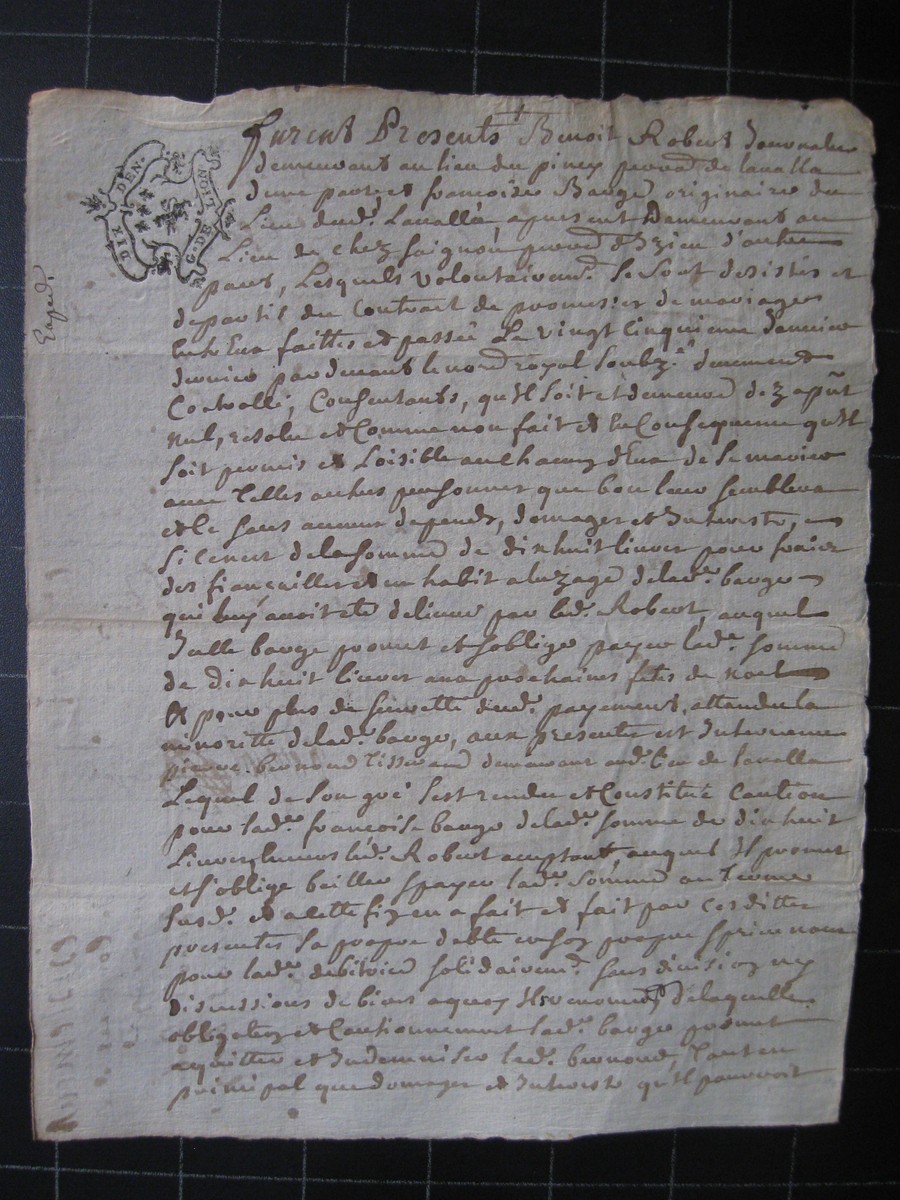 DIX DEN.
G. DE LION.
Exped.
furent Presents Benoit Robert Journalier
demeurant au lieu du piney parrd de lavalla
d'une part, et francoise Barge originaire du
Lieu dud. Lavalla, a present demeurant au
Lieu de chez faignon parrd d'Izieu d'autre
part, Lesquels volontairemt. se sont desistés et
departis du Contract de promesses de mariage
Entr'Eux faittes et passée Le vingt cinquieme Janvier
dernier par devant le nore royal soubzné. deument
Controllé, Consentants, qu'Il soit et demeure dez apnt
nul, resolu et Comme non fait et En Consequence qu'Il
soit permis et Loisible au chacung d'Eux de se marier
avec Telles autres personnes que bon leur semblera
et ce sans aucuns depends, domages et Interests,
si ce n'est de la somme de dixhuit livres pour fraix
des fiançailles et un habit a luzage de lad. barge
qui luy avoit eté delivré par led. Robert, auquel
Icelle barge promet et s'oblige payer lad. somme
de dixhuit livres aux prochaines fetes de noel
Et pour plus de seurette dud. payement, attendu la
minorité de lad. barge, aux presentes est Intervenu
pierre bernond Tisserand demeurant aud. lieu de lavalla
Lequel de son gré s'est rendu et Constitué Caution
pour lad. francoise barge de lad. somme de dixhuit
Livres envers led. Robert acceptant, auquel Il promet
et s'oblige bailler & payer lad. somme au Terme
susd. et a cette fin en a fait et fait par ces dittes
presentes sa propre debte en son propre & privé nom
pour lad. debitrice solidairemt. sans division ny
discussions de biens a quoy Il renonce, de laquelle
obligation et Cautionnement lad. barge promet
acquitter et Indemniser led. bernond, Tant en
principal que domages et Interests qu'Il pourroit